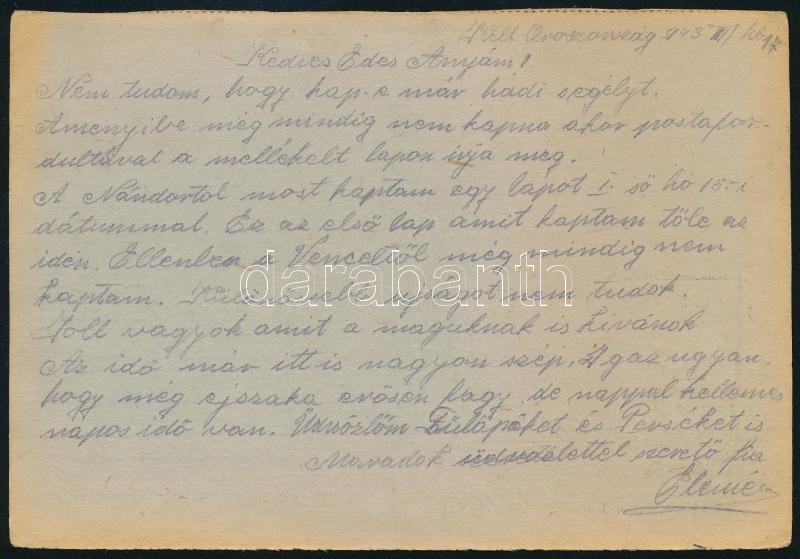 Kelt Oroszország 943 III/ hó 17
Kedves Édes Anyám!
Nem tudom, hogy kap-e már hadi segélyt.
Amenyibe még mindig nem kapna akor postafor-
dultával a mellékelt lapon irja meg.
A Nándortol most kaptam egy lapot I. ső hó 15-i
dátummal. Ez az első lap amit kaptam tőle az
idén. Ellenben a Venceltől még mindig nem
kaptam. Különösebb ujságot nem tudok.
Joll vagyok amit a maguknak is kivánok
Az idő már itt is nagyon szép, Igaz ugyan,
hogy még ejszaka erősen fagy, de nappal kellemes
napos idő van. Üdvözlöm Fülöpéket és Perséket is
Maradok szerető fia
Elemér
darabanth